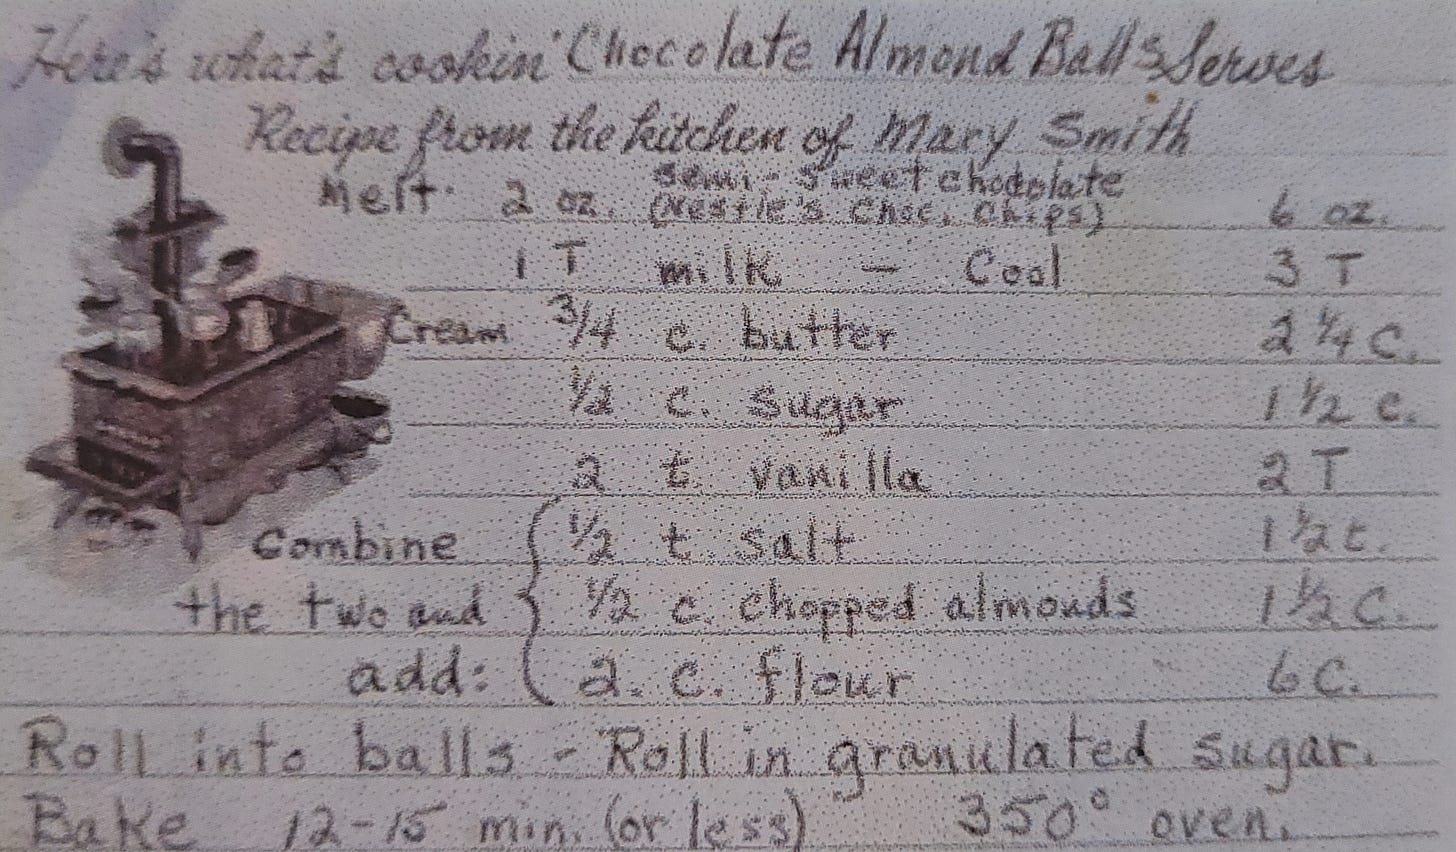 Here's what's cookin' Chocolate Almond Balls Serves
Recipe from the kitchen of Mary Smith
Melt 2 oz. semi-sweet chocolate (Nestle's Choc. Chips) 6 oz.
1 T milk - Cool 3 T
Cream 3/4 c. butter 2 1/4 C.
1/2 c. sugar 1 1/2 c.
2 t. vanilla 2 T
Combine 1/2 t. salt 1 1/2 t.
the two and 1/2 c. chopped almonds 1 1/2 C.
add: 2 c. flour 6 C.
Roll into balls - Roll in granulated sugar.
Bake 12-15 min. (or less) 350° oven.